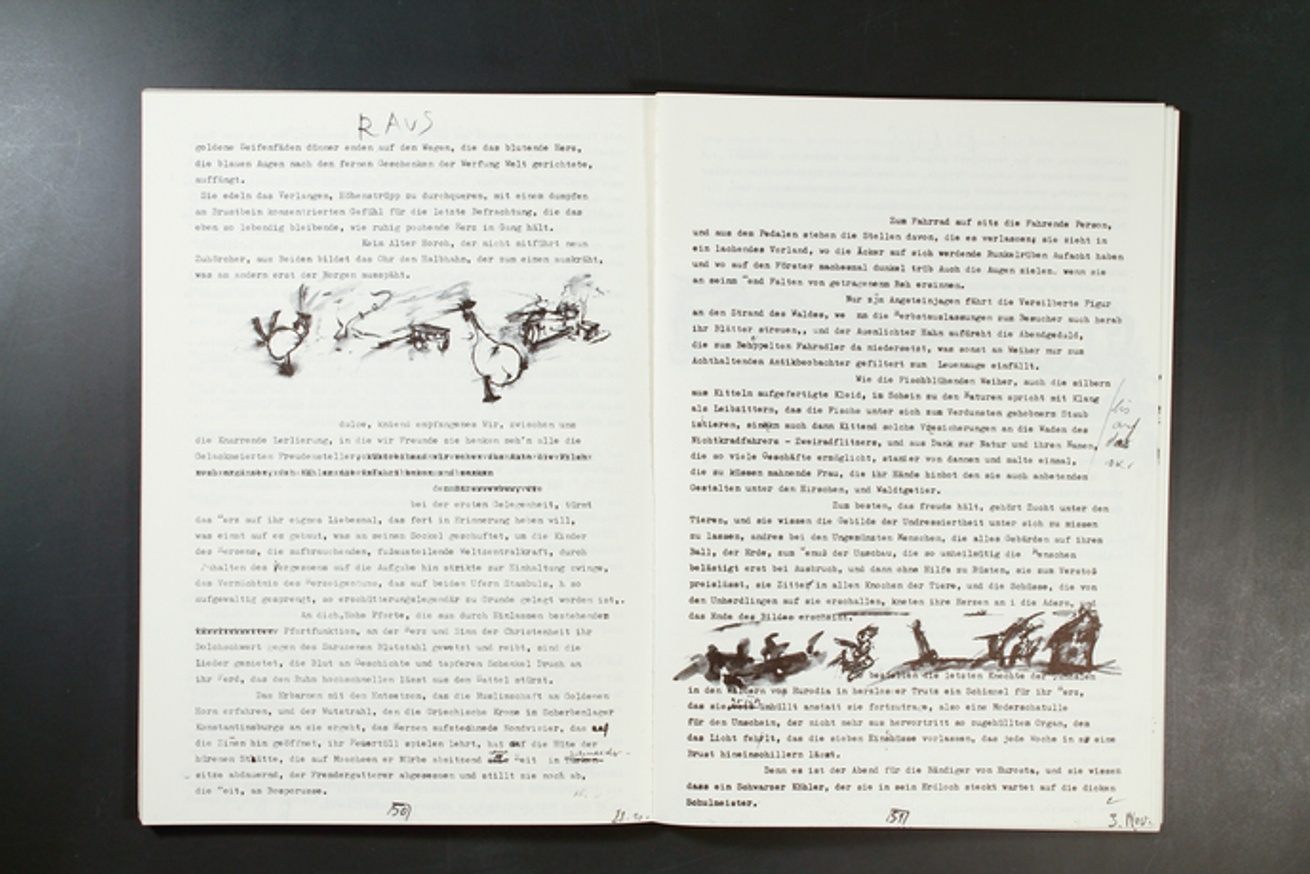 RAUS
goldene Seifenfäden dünner enden auf den Wagen, die das blutende Herz,
die blauen Augen nach den fernen Geschenken der Werfung Welt gerichtete,
auffängt.
Die edeln das Verlangen, Höhenstrüpp zu durchqueren, mit einem dumpfen
am Brustbein konzentrierten Gefühl für die Letzte Befrachtung, die das
eben so lebendig bleibende, wie ruhig pochende Herz in Gang hält.
Kein Alter Horch, der nicht mitführt neun
Zuhörcher, aus Beiden bildet das Ohr den Halbhahn, der zum einen auskräht,
was am andern erst der Morgen ausspäht.
dulce, kniend empfangenes Wir, zwischen uns
die Knurrende Lerlierung, in die wir Freunde sie henken seh'n alle die
Gelackmeierten Freudensteller,
bei der ersten Gelegenheit, türmt
das "erz auf ihr eignes Liebesmal, das fort in Erinnerung heben will,
was einst auf es gebaut, was an seinen Sockel geschuftet, um die Kinder
des Herzens, die aufbrauchenden, fußausteilende Weltzentralkraft, durch
halten des Vergessens auf die Aufgabe hin strikte zur Einhaltung zwinge,
das Vermächtnis des "erzeigentums, das auf beiden Ufern Stambuls, h so
aufgewaltig gesprengt, so erschütterungslegendär zu Grunde gelegt worden ist,.
An dich, Hohe Pforte, die aus durch Einlassen bestehender
Pfortfunktion, an der "erz und Sinn der Christenheit ihr
Dolchschwert gegen des Sarazenen Blutstahl gewetzt und reibt, sind die
Lieder gemietet, die Blut an Geschichte und tapferen Schenkel Druck an
ihr Pferd, das den Ruhm hochschnellen lässt aus dem Sattel stürzt.
Das Erbarmen mit den Entsetzen, das die Muslimschaft am Goldenen
Horn erfahren, und der Wutstrahl, den die Griechische Krone in Scherbenlager
Konstantinsburgs an sie ergeht, das Herzen aufstechende Mondvisier, das auf
die Sinen hin geöffnet, ihr "euertüll spielen lehrt, hat auf die Hüte der
hürenen Stätte, die auf Moscheen er Mürbe absitzend "eit in
sitze abdauernd, der Fremdergatterer abgesessen und stillt sie noch ab,
die "eit, am Bosporusse.
150
Zum Fahrrad auf sits die Fahrende Person,
und aus den Pedalen stehen die Stellen davon, die es verlassen; sie zieht in
ein lachendes Vorland, wo die Äcker auf sich werdende Runkelrüben Aufacht haben
und wo auf den Förster manchesmal dunkel trüb Auch die Augen zielen. wenn sie
an seinm "emd Falten von getragenem Reh ersinnen.
Nur zjm Angsteinjagen führt die Versilberte Figur
an den Strand des Waldes, we nn die "erbstauslassungen zum Besucher auch herab
ihr Blätter streuen,, und der Auenlichter Hahn aufdreht die Abendgeduld,
die zum Behoppelten Fahradler da niedersetzt, was sonst am Weiher nur zum
Achthaltenden Antikbeobachter gefiltert zum Leuenauge einfällt.
Wie die Fischblühenden Weiher, auch die silbern
aus Kitteln aufgefertigte Kleid, im Schein zu den Naturen spricht mit Klang
als Leibzittern, das die Fische unter sich zum Verdunsten gehobnem Staub
imitieren, auch dann Kittend solche Versicherungen an die Waden des
Nichtkradfahrers - Zweiradflitzers, und aus Dank zur Natur und ihren Namen,
die so viele Geschäfte ermöglicht, stanzer von dannen und malte einmal,
die zu küssen mahnende Frau, die ihr Hände hinbot den sie auch anbetenden
Gestalten unter den Hirschen, und Waldtgetier.
Zum besten, das freude hält, gehört Zucht unter den
Tieren, und sie wissen die Gebilde der Undressiertheit unter sich zu missen
zu lassen, andres bei den Ungemünzten Menschen, die alles Gebärden auf ihrem
Ball, der Erde, zum "enuß der Umschau, die so unheilmütig die "enschen
belästigt erst bei Ausbruch, und dann ohne Hilfe zu Rüsten, sie zum Verstoß
preislässt, sie Zittern in allen Knochen der Tiere, und die Schüsse, die von
den Unherdlingen auf sie erschallen, kneten ihre Herzen an i die Adern, und
das Ende des Bildes erscheint.
besteigen die letzten Knechte der
in den Wäldern von Eurodia in herzloser Truts ein Schimmel für ihr "erz,
das sie umhüllt anstatt sie fortzutrage, also eine Moderschatulle
für den Umschein, der nicht mehr aus hervortritt so zugehülltem Organ, dem
das Licht fehlt, das die sieben Einsbüsse vorlassen, das jede Woche in so eine
Brust hineinschillern lässt.
Denn es ist der Abend für die Bändiger von Eurosta, und sie wissen
dass ein Schwarzer Köhler, der sie in sein Erdloch steckt wartet auf die dicken
Schulmeister.
151
3. Nov.